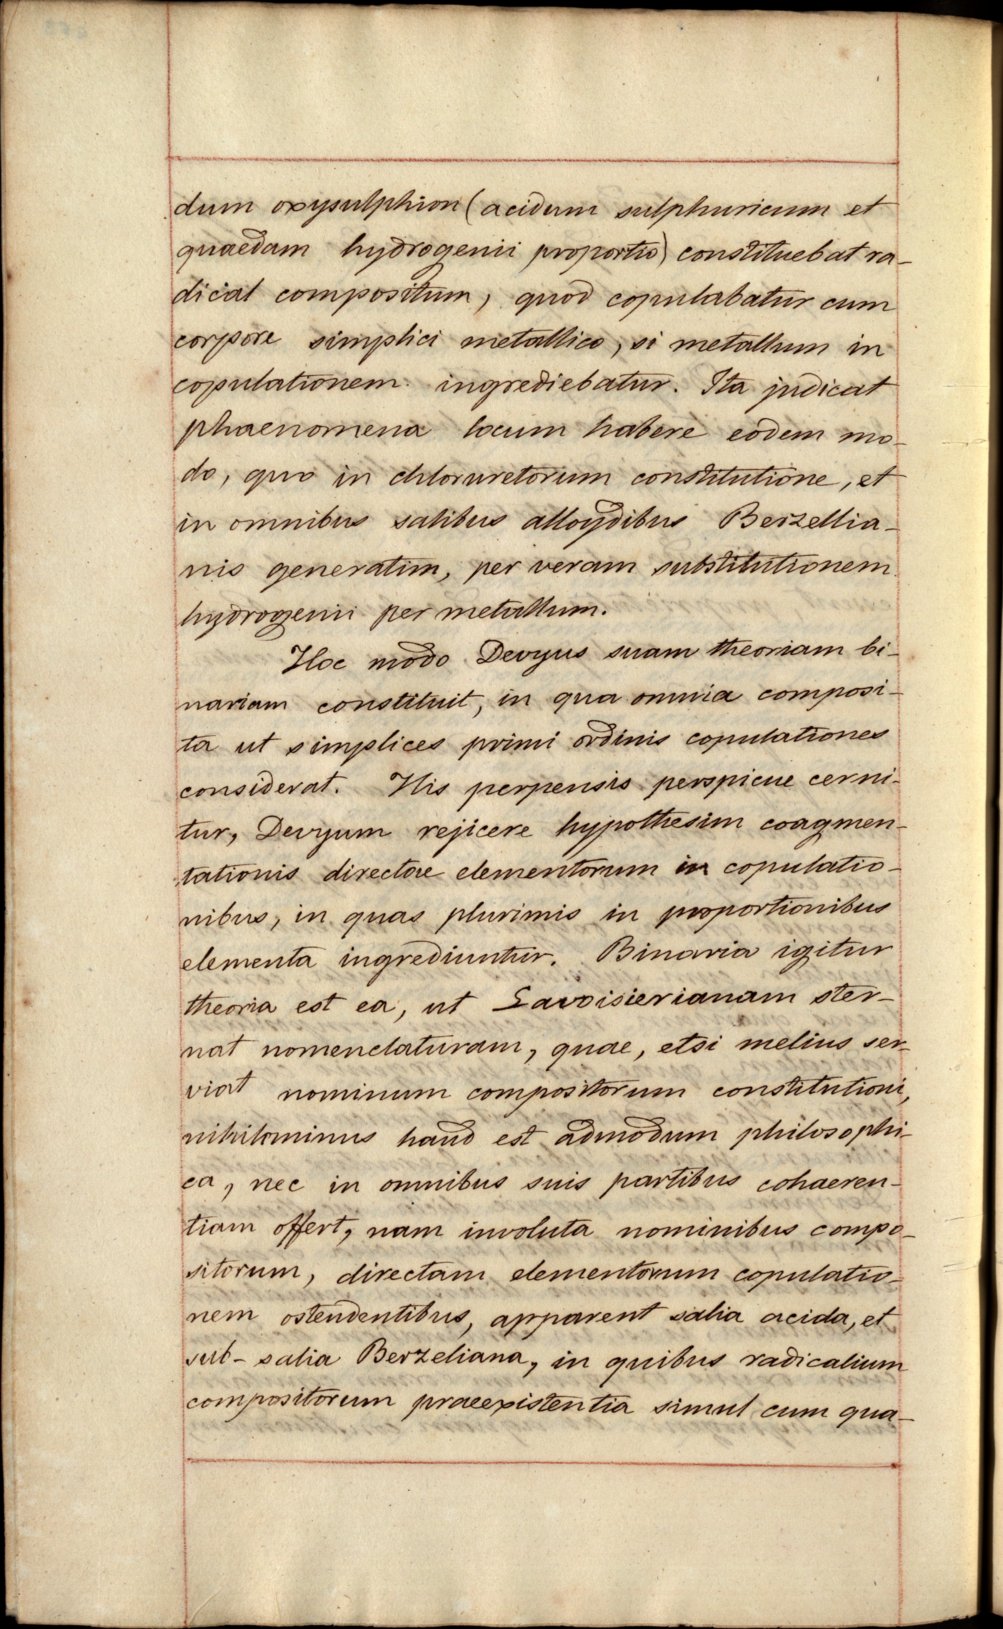 dum oxysulphion (acidum sulphuricum et
quaedam hydrogenii proportio) constituebat ra-
dical compositum, quod copulabatur cum
corpore simplici metallico, si metallum in
copulationem ingrediebatur. Ita judicat
phaenomena locum habere eodem mo-
do, quo in chloruretorum constitutione, et
in omnibus salibus alloydibus Berzellia-
nis generatim, per veram substitutionem
hydrogenii per metallum.
Hoc modo Devyus suam theoriam bi-
nariam constituit, in qua omnia composi-
ta ut simplices primi ordinis copulationes
considerat. His perpensis perspicue cerni-
tur, Devyum rejicere hypothesim coagmen-
tationis directae elementorum in copulatio-
nibus, in quas plurimis in proportionibus
elementa ingrediuntur. Binaria igitur
theoria est ea, ut Lavoisierianam ster-
nat nomenclaturam, quae, etsi melius ser-
viat nominum compositorum constitutioni,
nihilominus haud est admodum philosophi-
ca, nec in omnibus suis partibus cohaeren-
tiam offert, nam involuta nominibus compo-
sitorum, directam elementorum copulatio-
nem ostendentibus, apparent salia acida, et
sub-salia Berzeliana, in quibus radicalium
compositorum praeexistentia simul cum qua-